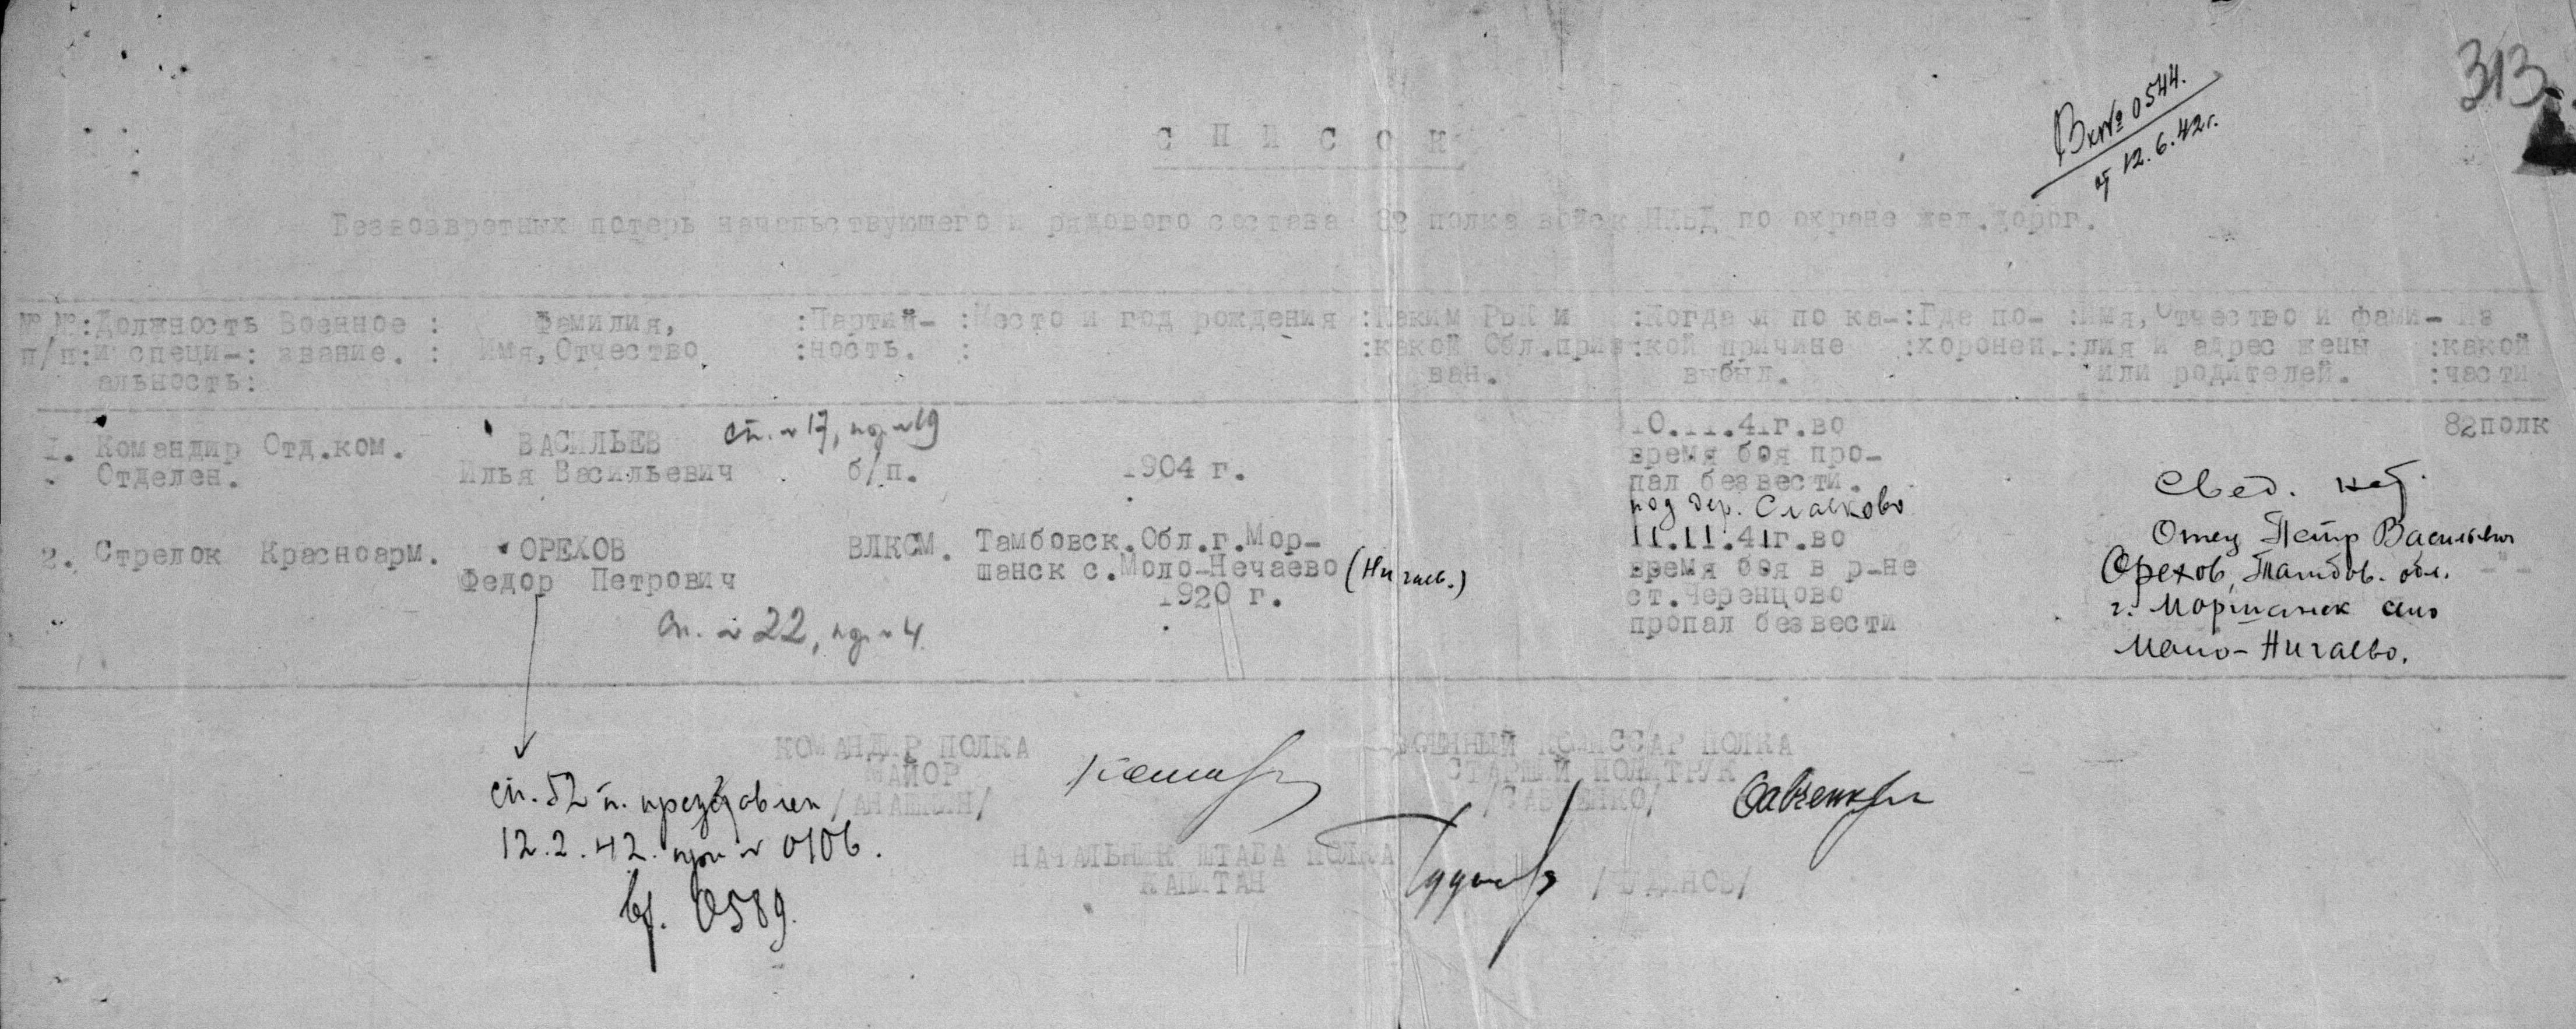 313.
Вх№ 0544.
от 12.6.42г.
С П И С О К
Безвозвратных потерь начальствующего и рядового состава 82 полка войск НКВД по охране жел.дорог.
№ №:Должность Военное : Фамилия, :Партий- :Место и год рождения :Каким РВК и :Когда и по ка-:Где по- :Имя, Отчество и фами- Из
п/п:и специ-: звание. : Имя, Отчество :ность. : :какой Обл.приз:кой причине :хоронен.:лия и адрес жены :какой
альность: ван. выбыл. или родителей. :части
1. Командир Отд.ком. ВАСИЛЬЕВ сп. № 17, № 19 10.11.41г.во 82полк
Отделен. Илья Васильевич б/п. 1904 г. время боя про-
пал безвести. Свед. нет.
под дер. Славково
2. Стрелок Красноарм. ОРЕХОВ ВЛКСМ. Тамбовск.Обл.г.Мор- 11.11.41г.во Отец Петр Васильевич
Федор Петрович шанск с.Моло-Нечаево (Ничаев.) время боя в р-не Орехов, Тамбов. обл. -"-
1920 г. ст.Черенцово г. Моршанск село
сп. № 22, № 4 пропал безвести Мало-Ничаево.
КОМАНДИР ПОЛКА ВОЕННЫЙ КОМИССАР ПОЛКА
МАЙОР СТАРШИЙ ПОЛИТРУК
/АНАШКИН/ /САВЧЕНКО/ Савченко
сп. 52 п. представлен
12.2.42. при № 0106.
НАЧАЛЬНИК ШТАБА ПОЛКА
КАПИТАН
вх. 0589.